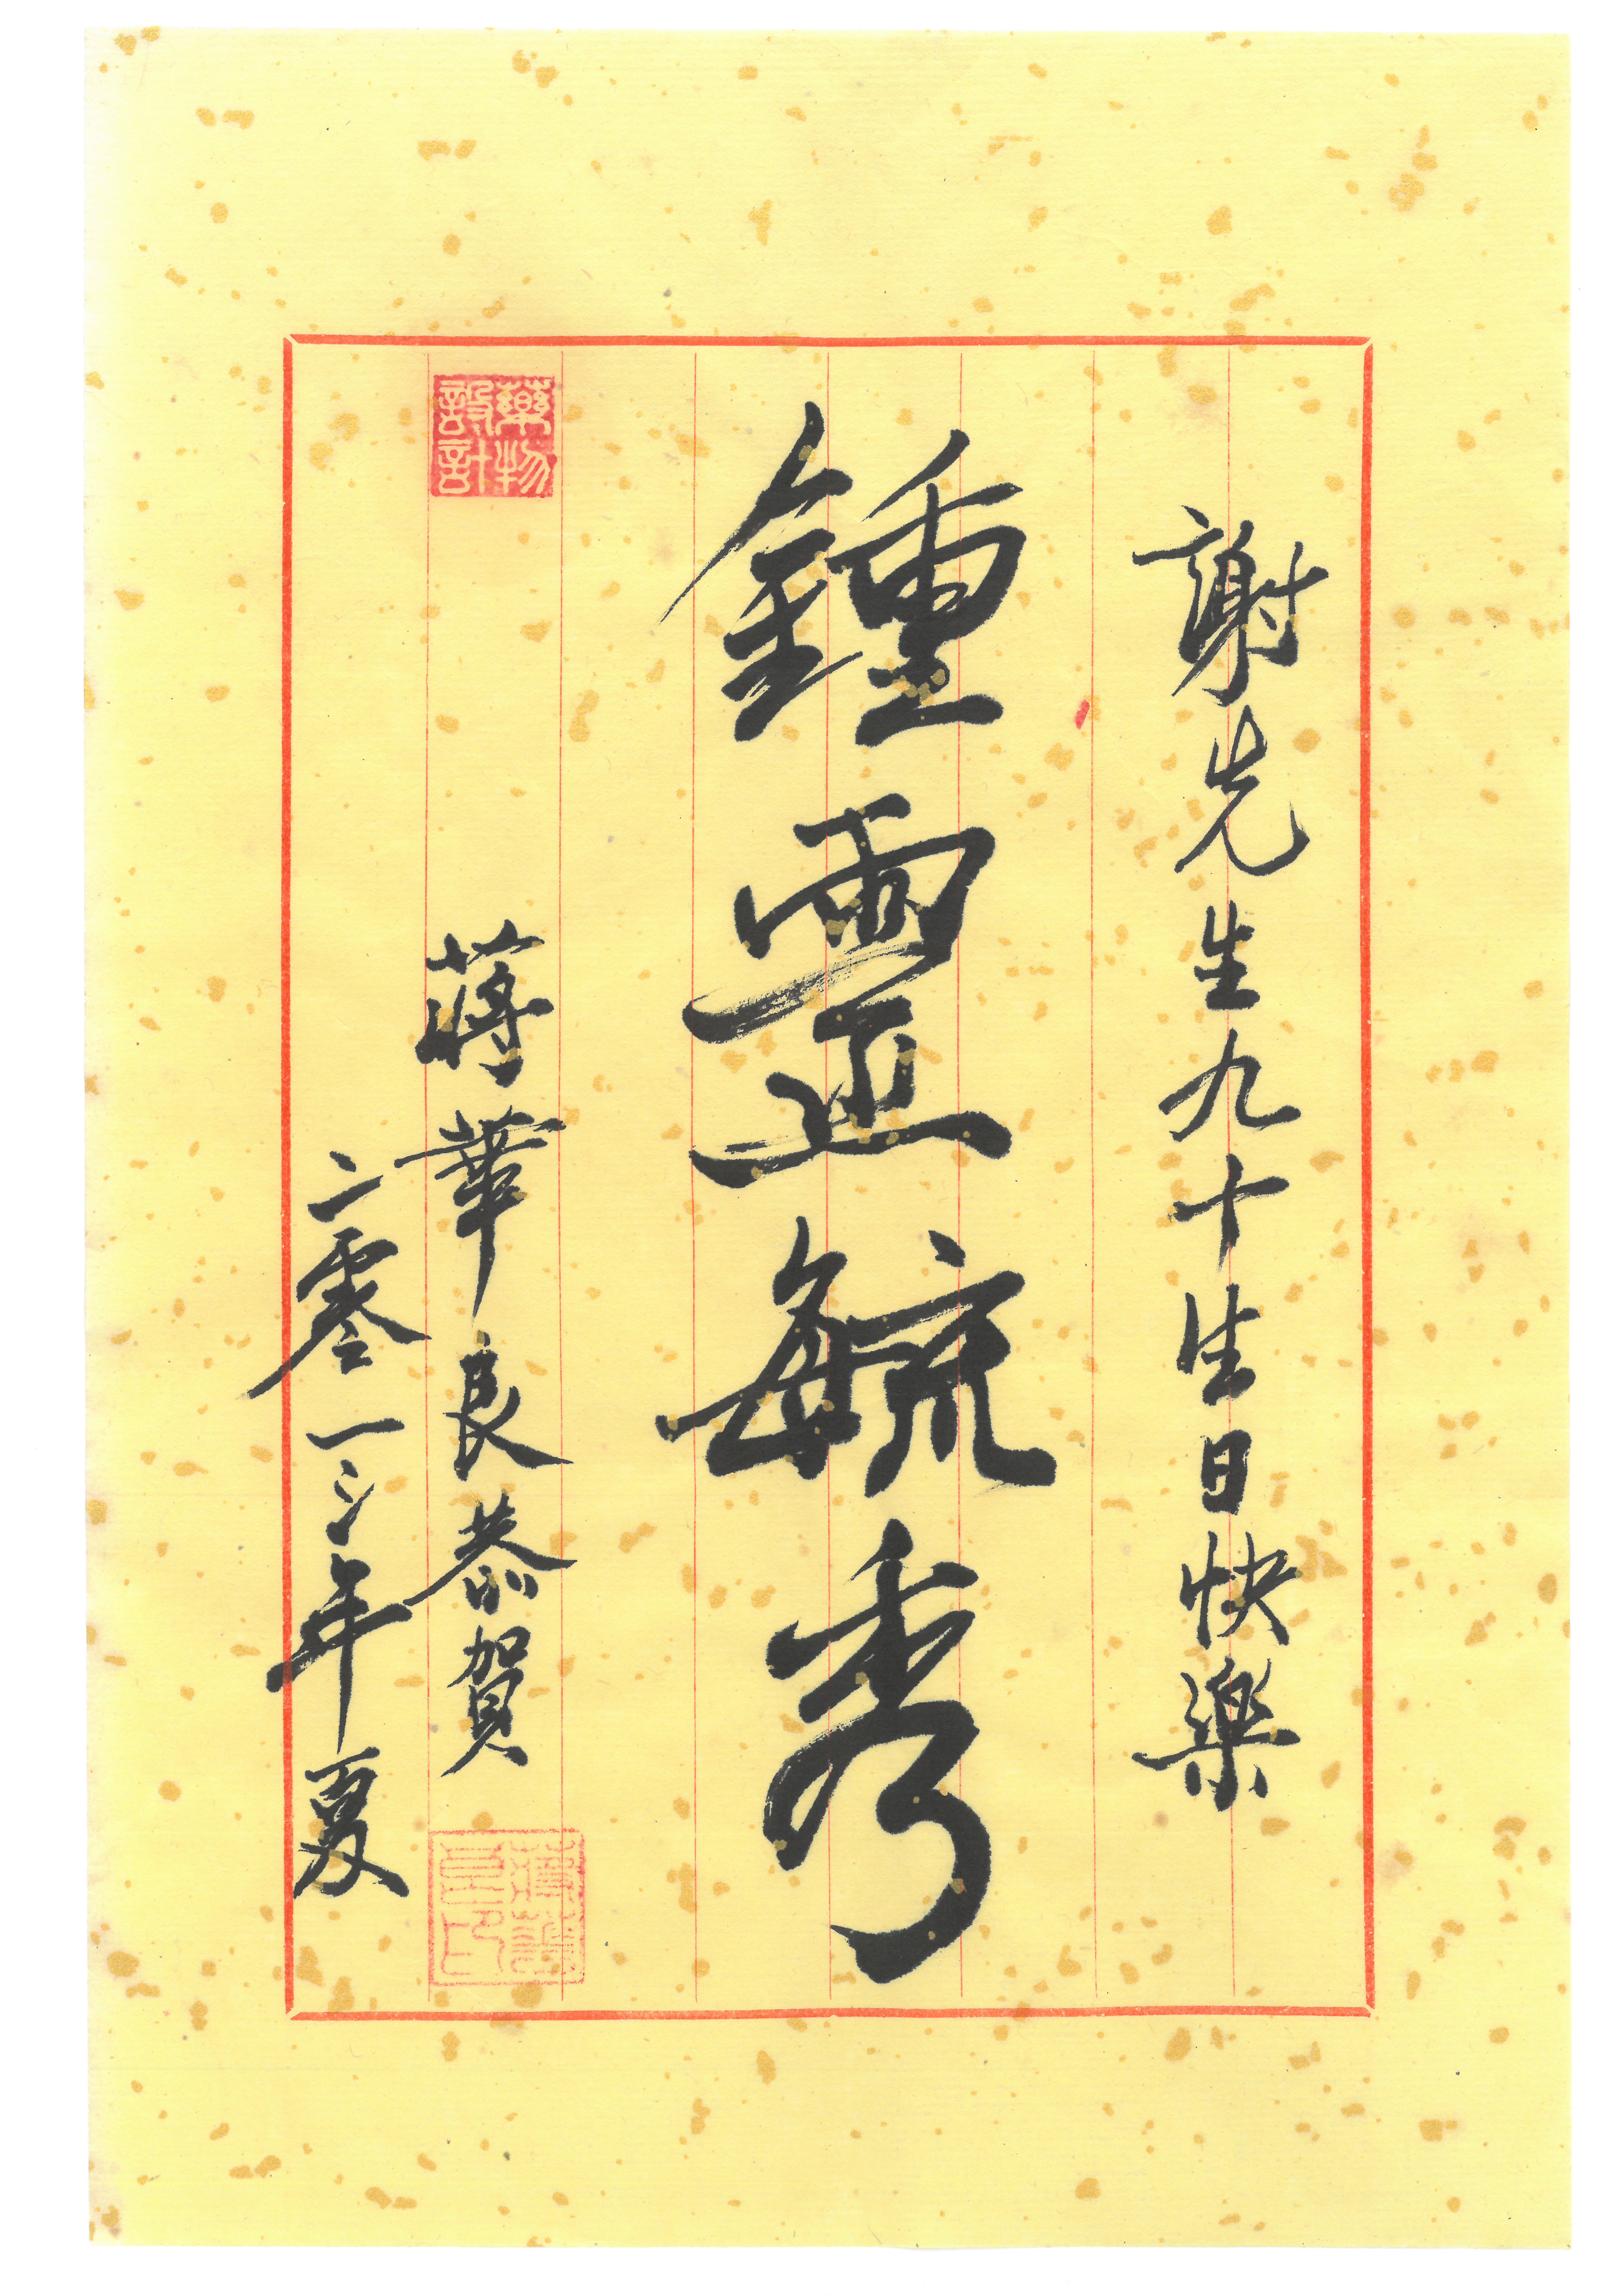 謝先生九十生日快樂
鍾靈毓秀
藥物設計
蔣華良恭賀
蔣華良印
二零一三年夏